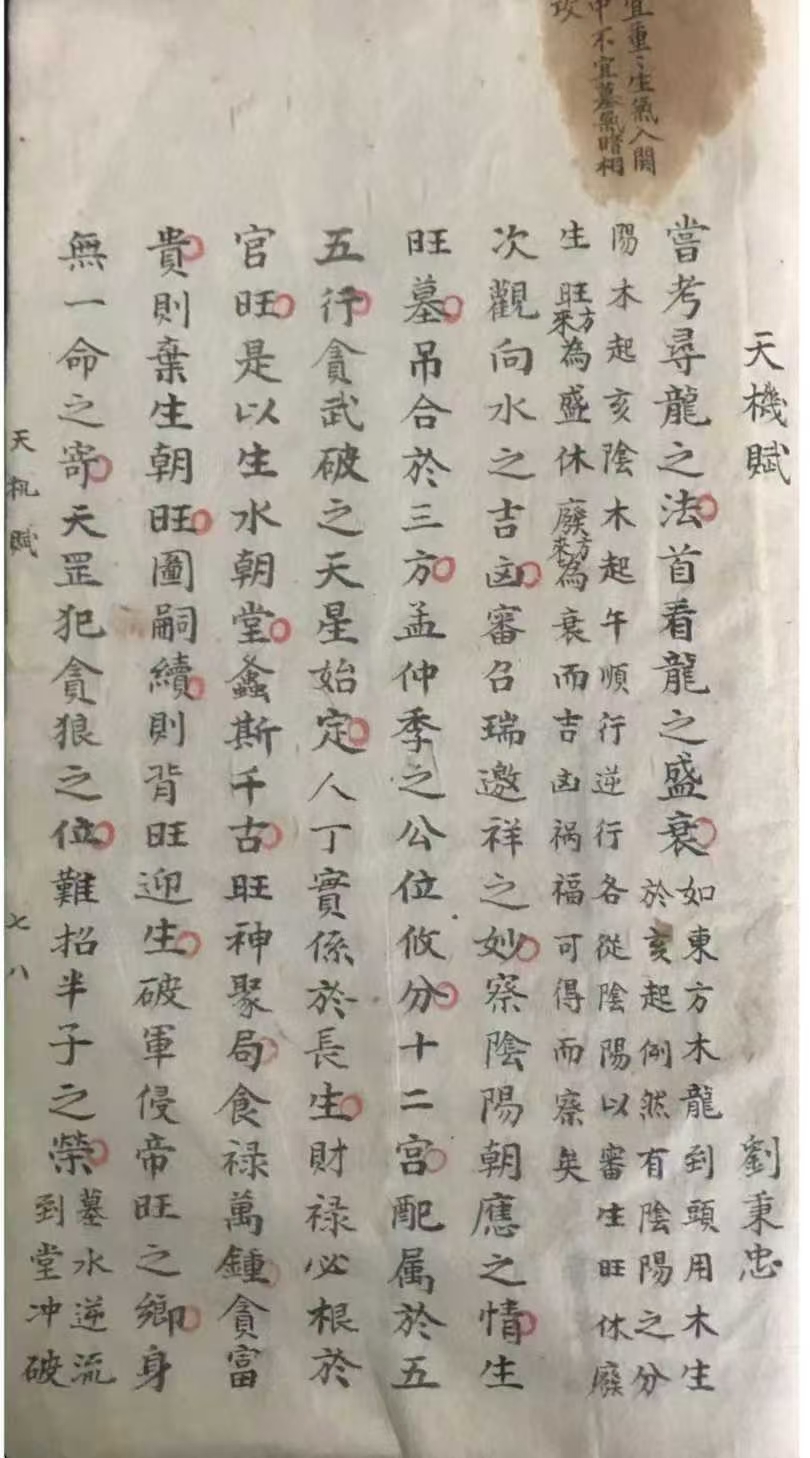 宜重〻生氣入関
申不宜墓氣暗相
攻
天機賦 劉秉忠
嘗考尋龍之法首看龍之盛衰
如東方木龍到頭用木生
於亥起例然有陰陽之分
陽木起亥陰木起午順行逆行各從陰陽以審生旺休廢
生旺方來為盛休廢方來為衰而吉凶祸福可得而察矣
次觀向水之吉凶審召瑞邀祥之妙察陰陽朝應之情生
旺墓吊合於三方孟仲季之公位攸分十二宮配属於五
五行貪武破之天星始定人丁實係於長生財禄必根於
官旺是以生水朝堂螽斯千古旺神聚局食禄萬鍾貪富
貴則棄生朝旺圖嗣續則背旺迎生破軍侵帝旺之鄉身
無一命之寄天罡犯貪狼之位難招半子之榮
墓水逆流
到堂冲破
天机賦 七八